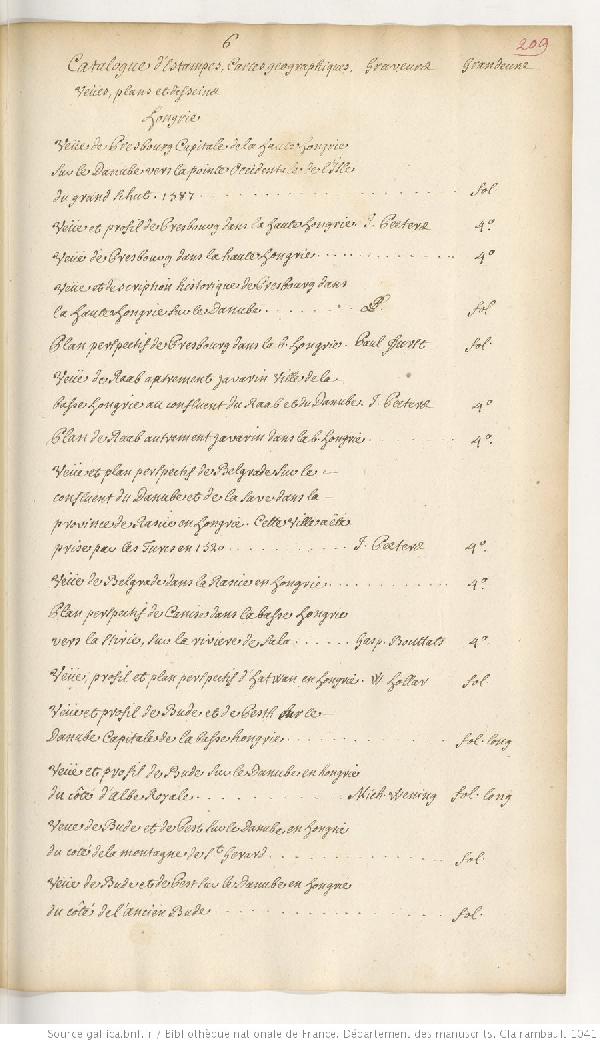 6
209
Catalogue d'Estampes, Cartes geographiques, Graveurs Grandeurs
Veües, plans et desseins
Hongrie
Veüe de Presbourg Capitale de la haute hongrie
sur le Danube vers la pointe Occidentale de l'Isle
du grand schut. 1587 . . . . fol
Veüe et profil de Presbourg dans la haute hongrie J. Peeters 4°
Veüe de Presbourg dans la haute hongrie . . . . 4°
Veüe et description historique de Presbourg dans
la haute hongrie sur le Danube . . . . fol
Plan perspectif de Presbourg dans la h. hongrie. Paul furst fol.
Veüe de Raab autrement javarin Ville de la
basse hongrie au confluent du Raab et du Danube J. Peeters 4°
Plan de Raab autrement javerin dans la b. hongrie . . . . 4°.
Veüe et plan perspectif de Belgrade sur le
confluent du Danube et de la Save dans la
province de Rascie en hongrie. Cette Ville a été
prise par les Turcs en 1520 . . . . J. Peeters 4°.
Veüe de Belgrade dans la Rascie en hongrie . . . . 4°
Plan perspectif de Canise dans la basse hongrie
vers la Stirie, sur la riviere de Sala . . . . Gasp. Bouttats 4°
Veüe, profil et plan perspectif d'hatwan en hongrie. W hollar fol
Veüe et profil de Bude et de Pesth sur le
Danube Capitale de la basse hongrie . . . . fol. long
Veüe et profil de Bude sur le Danube en hongrie
du côté d'Albe Royale . . . . Mich. Wening fol. long
Veue de Bude et de Pest sur le Danube en hongrie
du coté de la montagne de St. Gerard . . . . fol.
Veüe de Bude et de Pest sur le Danube en hongrie
du côté de l'ancien Bude . . . . fol.
Source gallica.bnf.fr / Bibliothèque nationale de France. Département des manuscrits. Clairambault 1041